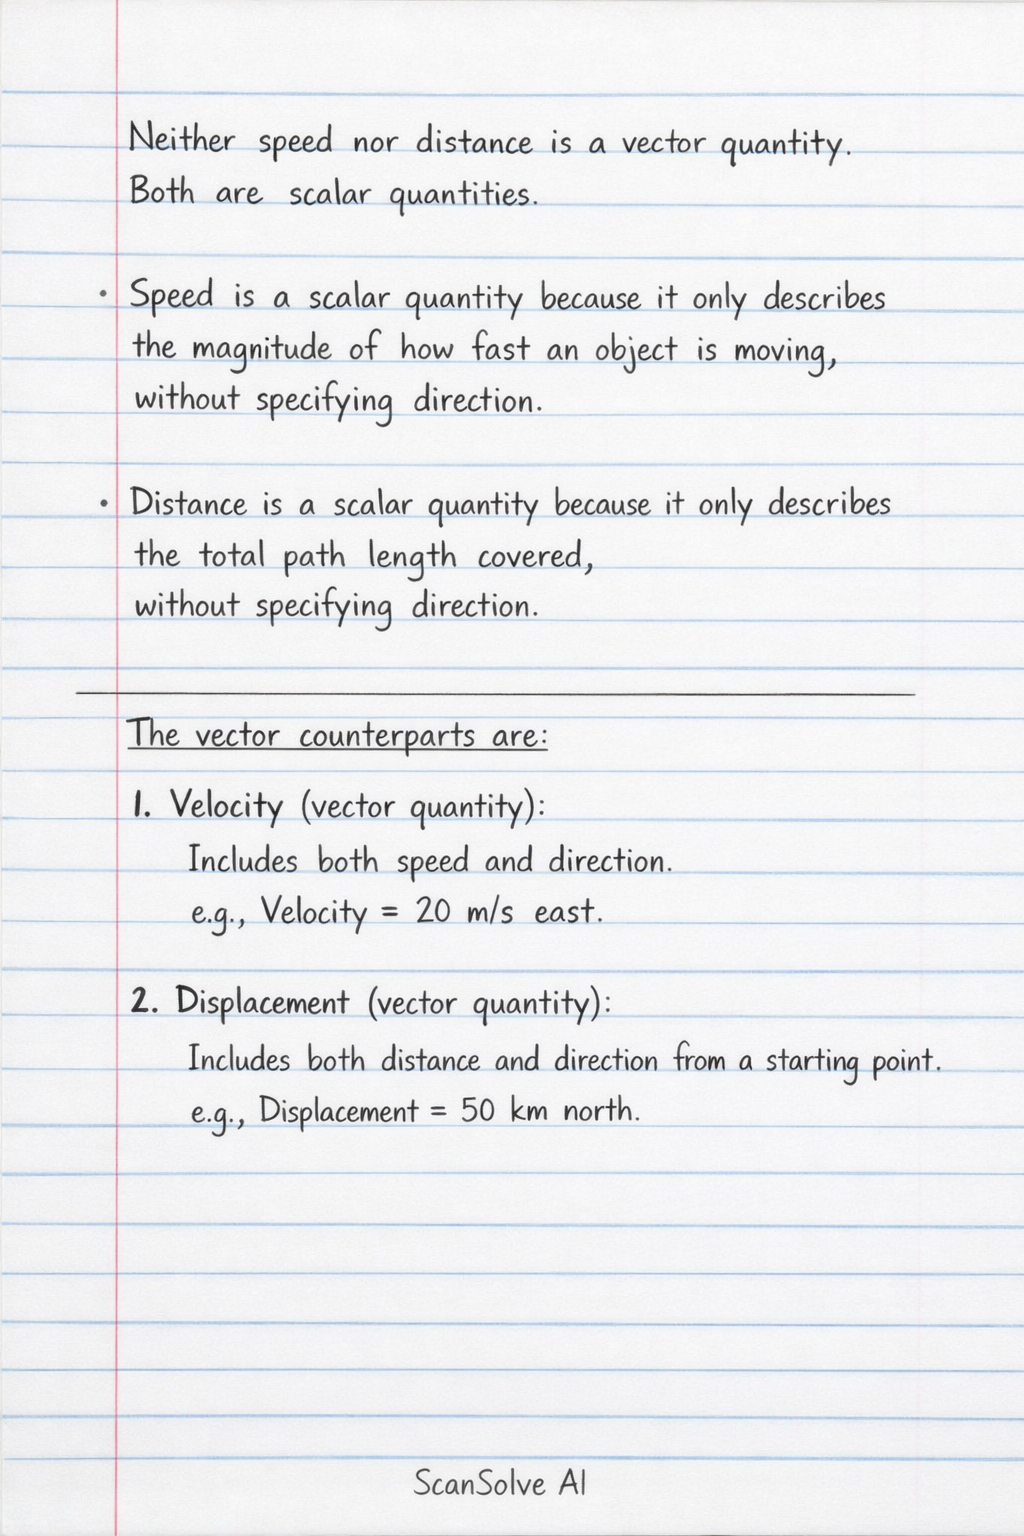 Neither speed nor distance is a vector quantity.
Both are scalar quantities.
• Speed is a scalar quantity because it only describes
the magnitude of how fast an object is moving,
without specifying direction.
• Distance is a scalar quantity because it only describes
the total path length covered,
without specifying direction.
The vector counterparts are:
1. Velocity (vector quantity):
Includes both speed and direction.
e.g., Velocity = 20 m/s east.
2. Displacement (vector quantity):
Includes both distance and direction from a starting point.
e.g., Displacement = 50 km north.
ScanSolve AI